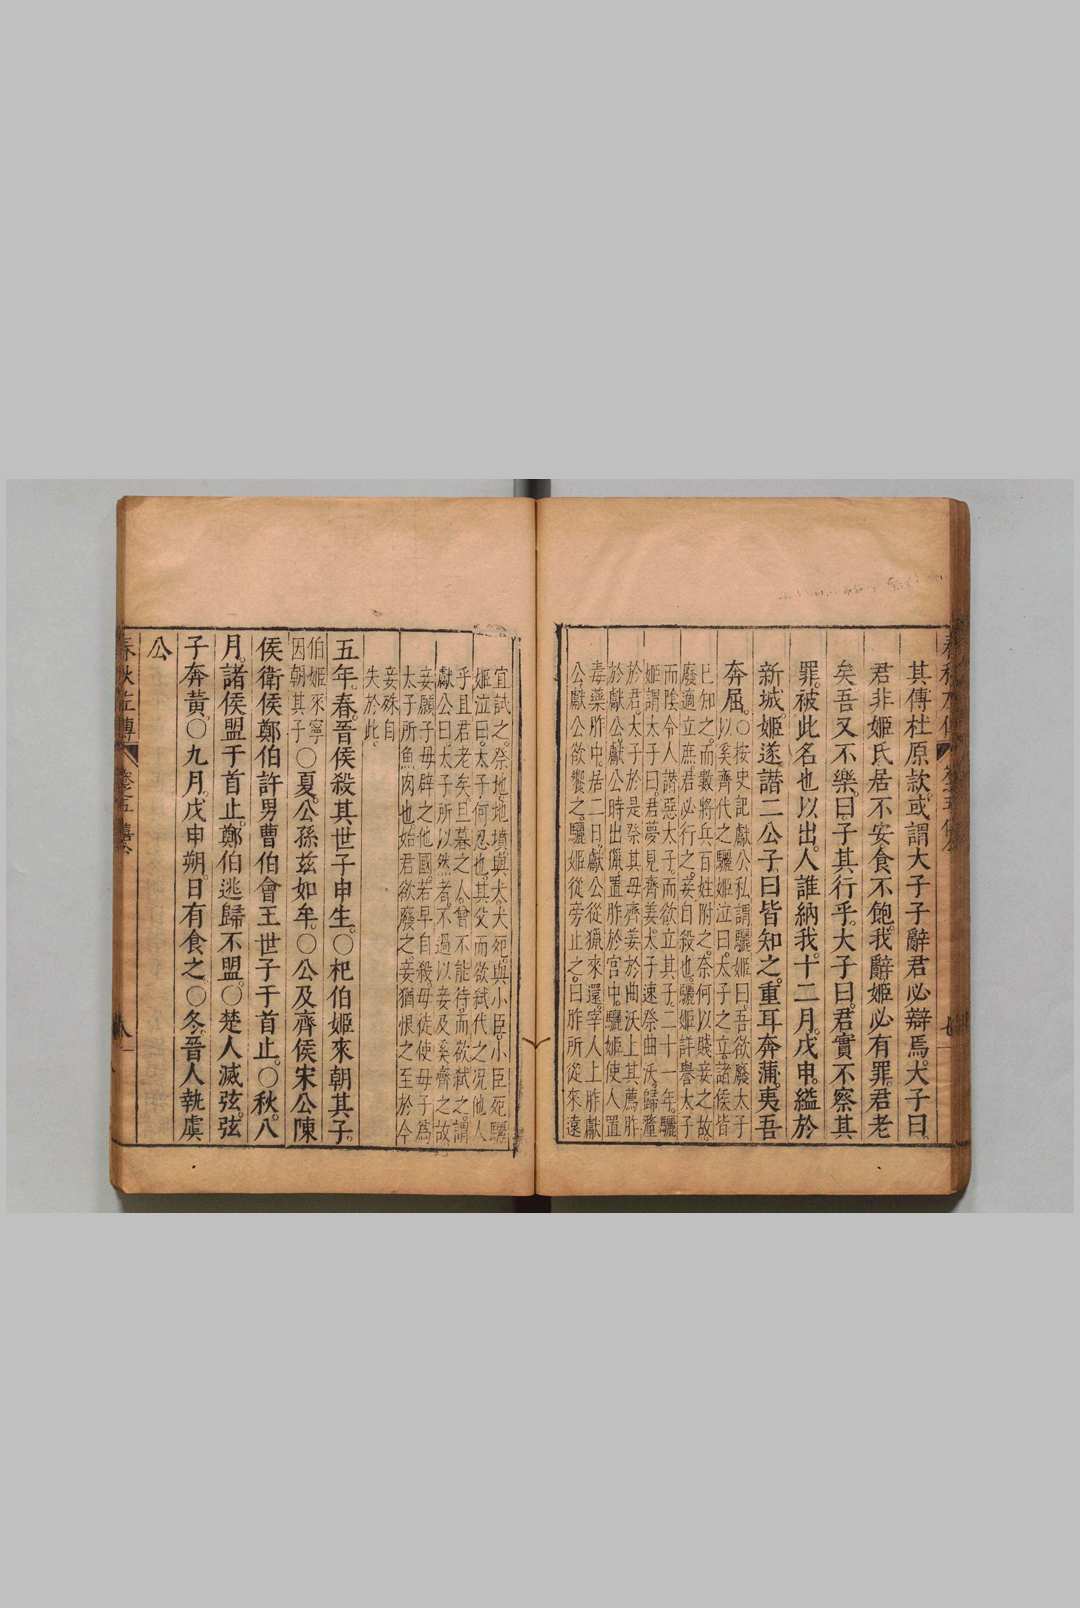 其傅杜原款或謂大子子辭君必辯焉大子曰
君非姬氏居不安食不飽我辭姬必有罪君老
矣吾又不樂曰子其行乎大子曰君實不察其
罪被此名也以出人誰納我十二月戊申縊於
新城姬遂譖二公子曰皆知之重耳奔蒲夷吾
奔屈○按史記獻公私謂驪姬曰吾欲廢太子
以奚齊代之驪姬泣曰太子之立諸侯皆
已知之而數將兵百姓附之奈何以賤妾之故
廢適立庶君必行之妾自殺也驪姬詳譽太子
而陰令人譖惡太子而欲立其子二十一年驪
姬謂太子曰君夢見齊姜太子速祭曲沃歸釐
於君太子於是祭其母齊姜於曲沃上其薦胙
於獻公獻公時出獵置胙於宮中驪姬使人置
毒藥胙中居二日獻公從獵來還宰人上胙獻
公獻公欲饗之驪姬從旁止之曰胙所從來遠
宜試之祭地地墳與犬犬死與小臣小臣死驪
姬泣曰太子何忍也其父而欲弒代之况他人
乎且君老矣旦暮之人曾不能待而欲弒之謂
獻公曰太子所以然者不過以妾及奚齊之故
妾願子母辟之他國若早自殺毋徒使母子為
太子所魚肉也始君欲廢之妾猶恨之至於今
妾殊自
失於此
五年春晉侯殺其世子申生○杞伯姬來朝其子
伯姬來寧
因朝其子
○夏公孫玆如牟○公及齊侯宋公陳
侯衛侯鄭伯許男曹伯會王世子于首止○秋八
月諸侯盟于首止鄭伯逃歸不盟○楚人滅弦弦
子奔黃○九月戊申朔日有食之○冬晉人執虞
公
春秋左傳 卷之五